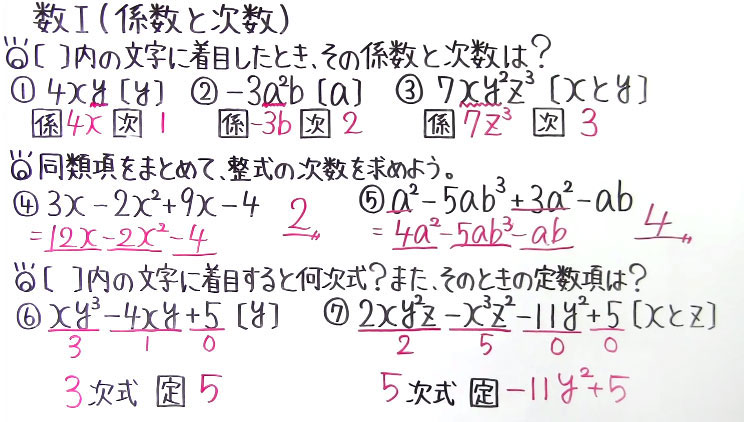 数Ⅰ(係数と次数)
[ ]内の文字に着目したとき、その係数と次数は?
① 4xy [y] ② -3a²b [a] ③ 7xy²z³ [xとy]
係 4x 次 1 係 -3b 次 2 係 7z³ 次 3
同類項をまとめて、整式の次数を求めよう。
④ 3x-2x²+9x-4 2 ⑤ a²-5ab³+3a²-ab 4
=12x-2x²-4 =4a²-5ab³-ab
[ ]内の文字に着目すると何次式?また、そのときの定数項は?
⑥ xy³-4xy+5 [y] ⑦ 2xy²z-x³z²-11y²+5 [xとz]
3 1 0 2 5 0 0
3次式 定 5 5次式 定 -11y²+5